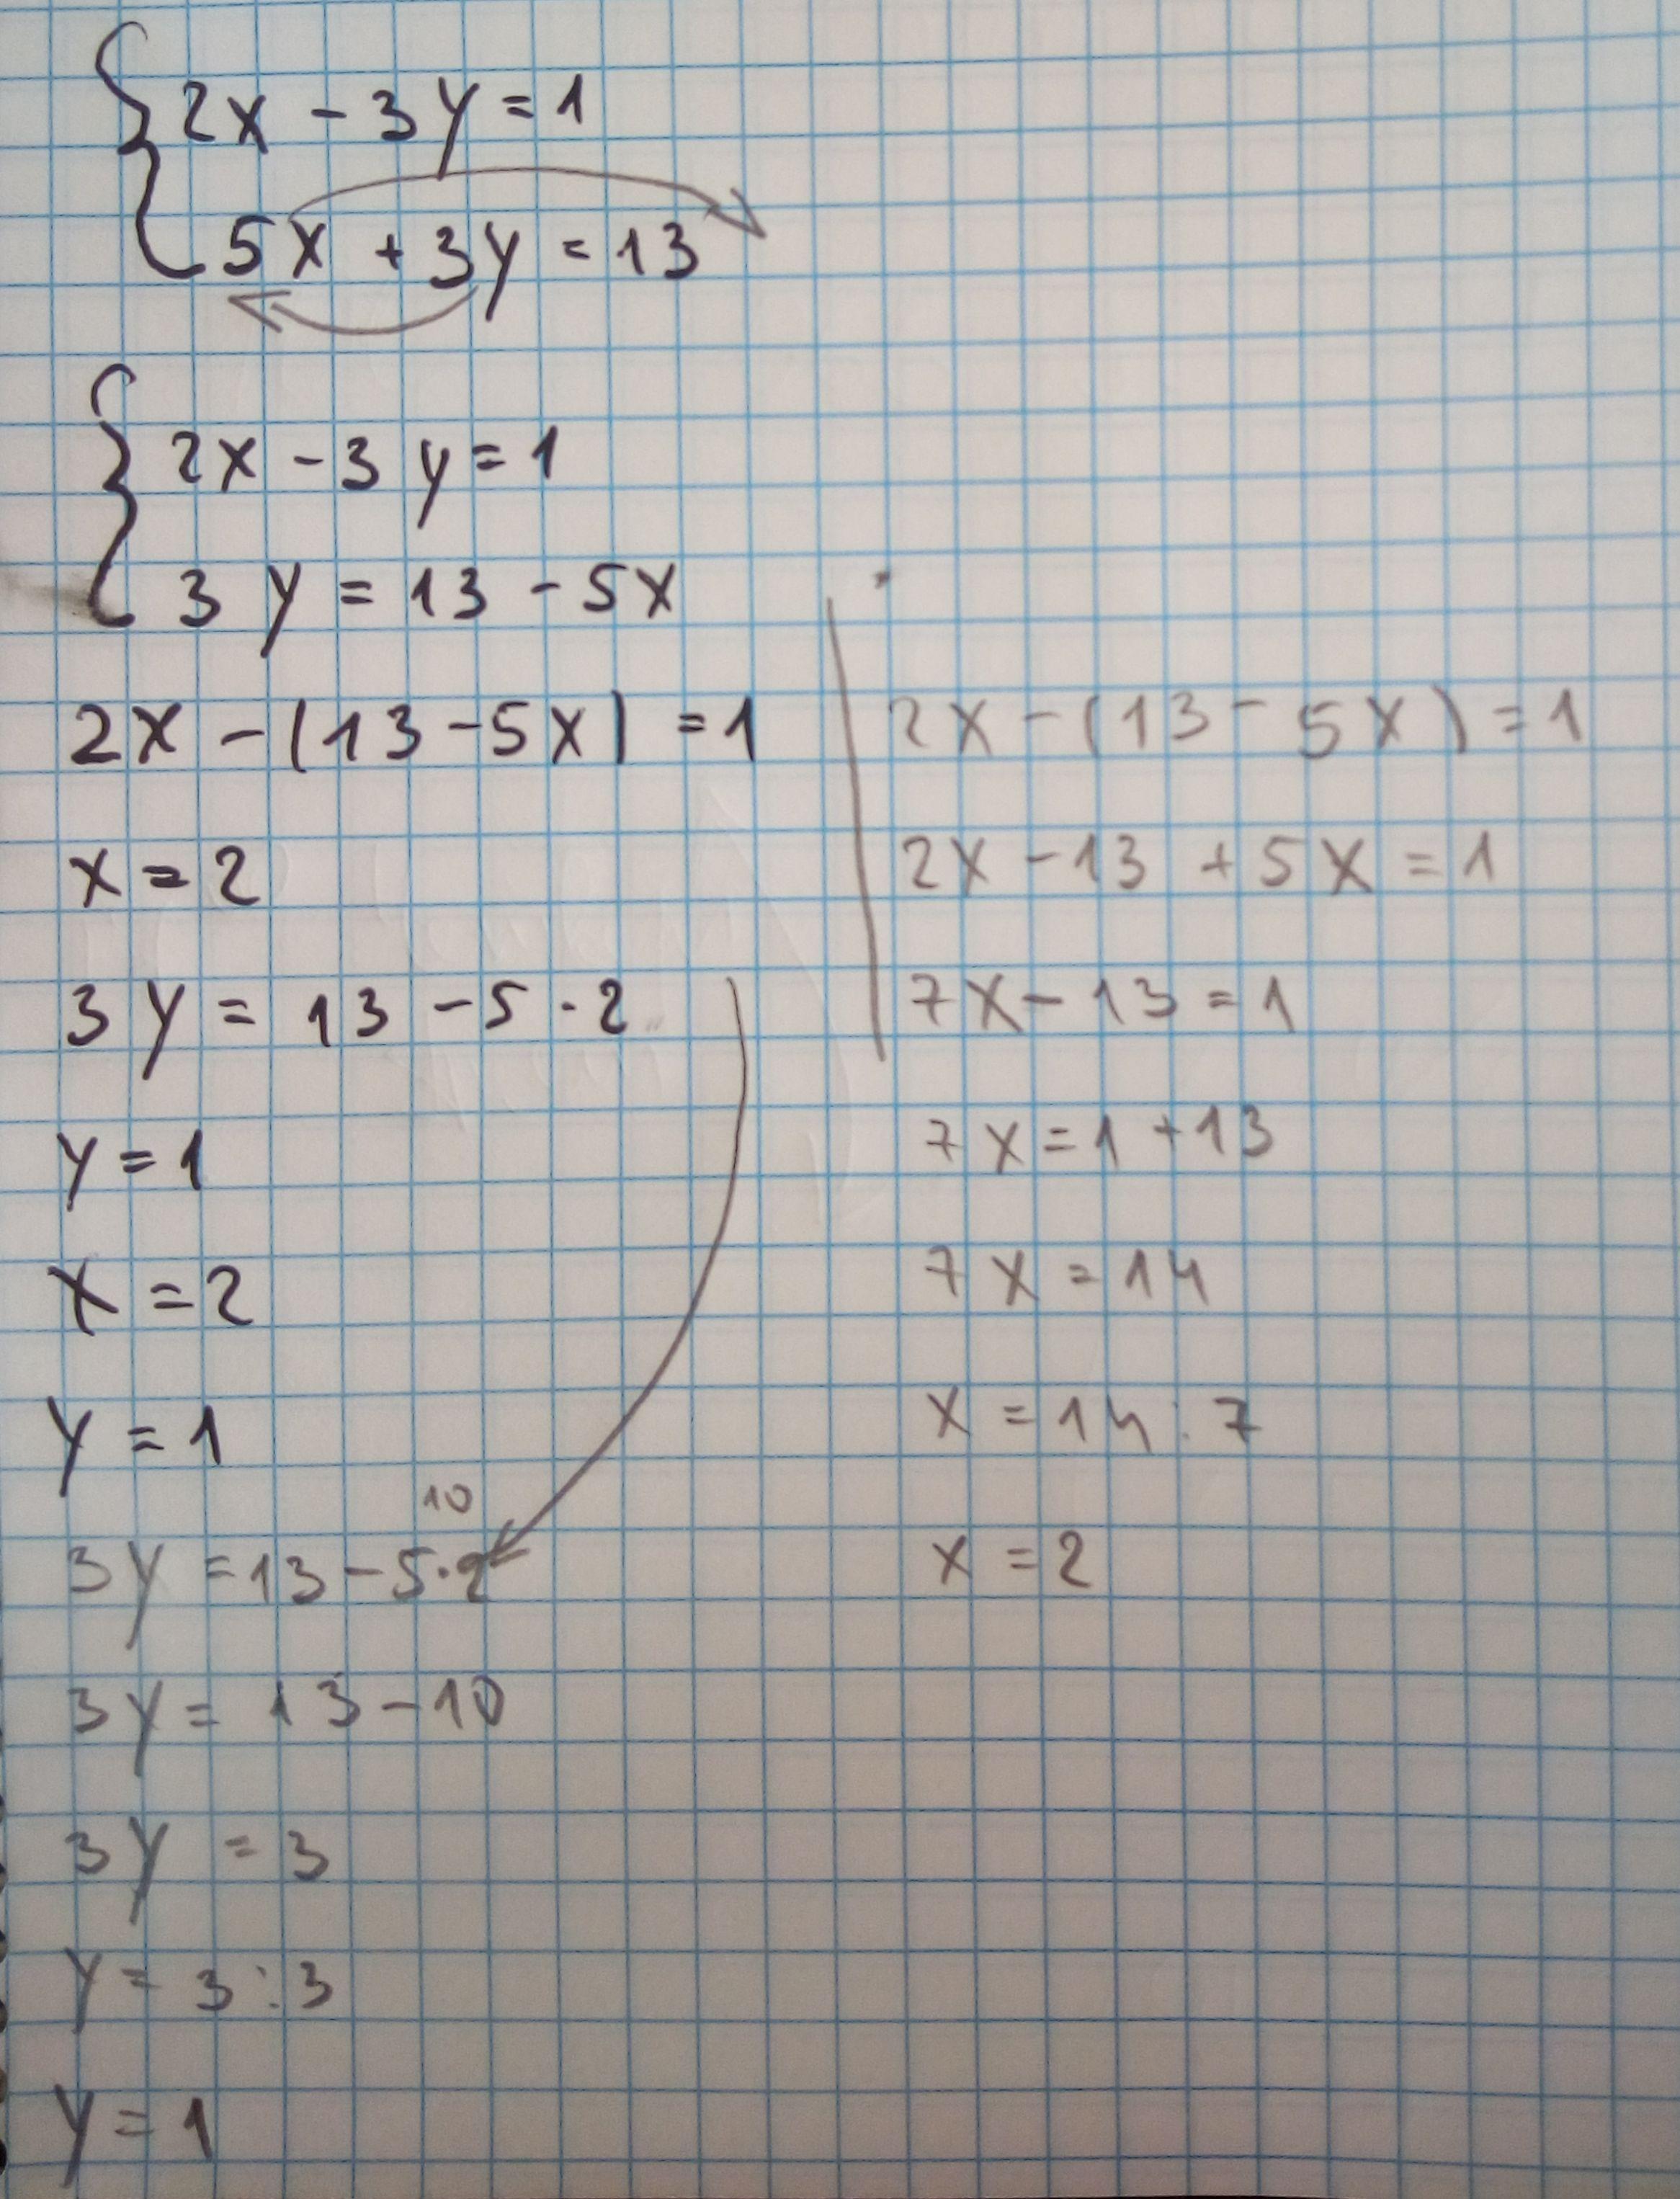 2x - 3y = 1
5x + 3y = 13
2x - 3y = 1
3y = 13 - 5x
2x - (13 - 5x) = 1
x = 2
3y = 13 - 5 · 2
y = 1
x = 2
y = 1
10
3y = 13 - 5 · 2
3y = 13 - 10
3y = 3
y = 3 : 3
y = 1
2x - (13 - 5x) = 1
2x - 13 + 5x = 1
7x - 13 = 1
7x = 1 + 13
7x = 14
x = 14 : 7
x = 2